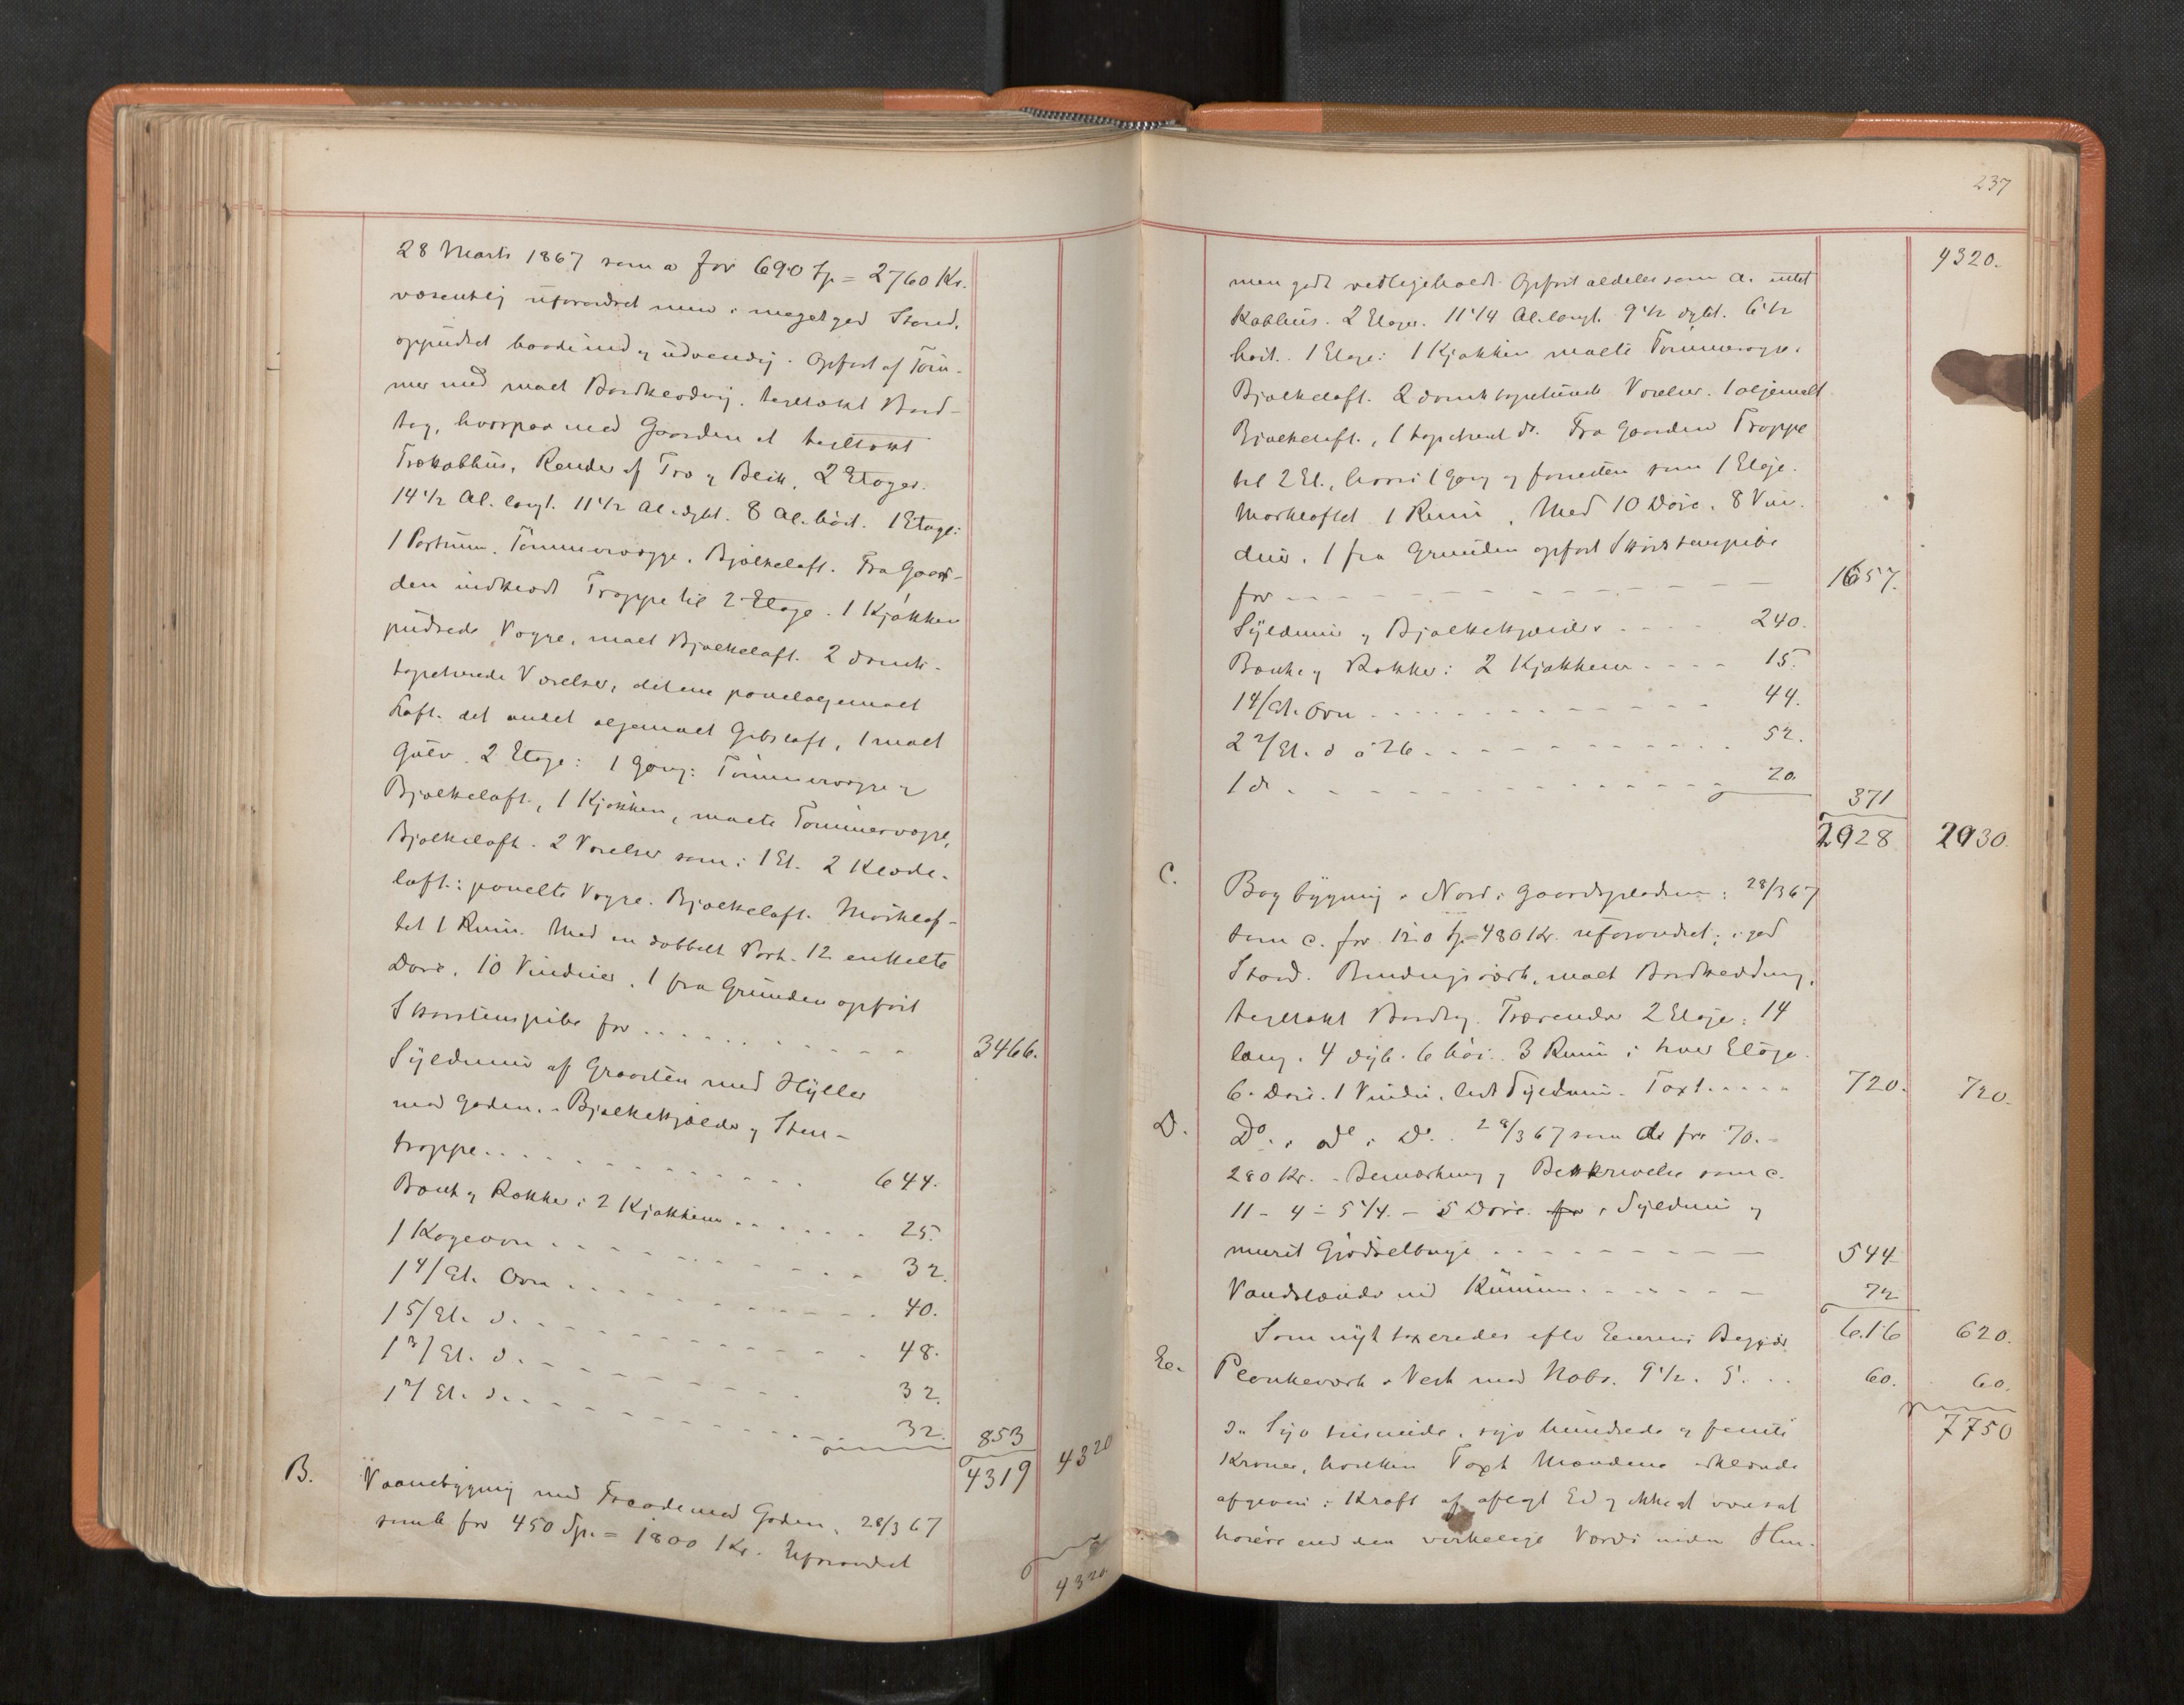 28 Marts 1867 som a for 690 Sp = 2760 Kr.
væsentlig uforandret men i meget god Stand,
oppudset baade ind og udvendig. Opført af Töm-
mer med malt Bordklædnig. tegltækt Bord-
tag, hvorpaa mod Gaarden et tegltækt
Trækobhus, Render af Træ og Blik, 2 Etager.
14 1/2 Al. langt. 11 1/2 Al. dybt. 8 Al. höit. 1 Etage:
1 Portrum. Tömmervægge. Bjælkeloft. Fra Gaar-
den indklædt Trappe til 2 Etage. 1 Kjökken
pudsede Vægge, malt Bjælkeloft. 2 dansk-
tapetserede Værelser, det ene panel oljemalt
Loft. det andet oljemalt Gibsloft, 1 malt
Gulv. 2 Etage: 1 Gang: Tömmervægge og
Bjælkeloft., 1 Kjökken, malte Tömmervægge,
Bjælkeloft. 2 Værelser som i 1 Et. 2 Klæde-
loft: panelte Vægge. Bjælkeloft. Mörklof-
tet 1 Rum. Med en dobbelt Port. 12 enkelte
Döre. 10 Vinduer. 1 fra Grunden opfört
Skorstenspibe for . . . 3466.
Syldmur af Graasten med Hyller
mod Gaden. Bjælkekjælder og Sten-
trappe . . . 644.
Bænk og Rækker i 2 Kjökkener . . . 25.
1 Kogeovn . . . 32.
1 4/Et. Ovn . . . 40.
1 5/Et. d. . . . 48.
1 3/Et. d. . . . 32.
1 2/Et. d. . . . 32. 853
4319 4320
B. Vaanebygning med Facade mod Gaden, 28/3 67
som b for 450 Sp. = 1800 Kr. Uforandret
4320.
237
4320.
men godt vedligeholdt. Opfört aldeles som a. intet
Kobhus. 2 Etager. 11 1/4 Al. langt. 9 1/2 dybt. 6 1/2
höit. 1 Etage: 1 Kjökken malte Tömmervægge.
Bjælkeloft. 2 dansk tapetserede Værelser. 1 oljemalt
Bjælkeloft., 1 tapetseret do. Fra Gaarden Trappe
til 2 Et., hvori 1 Gang og foruden som 1 Etage.
Mörkloftet 1 Rum. Med 10 Döre. 8 Vin-
duer. 1 fra Grunden opfört Skorstenspibe
for . . . 1657.
Syldmur og Bjælkekjælder . . . 240.
Bænk og Rækker i 2 Kjökkener . . . 15.
1 4/Et. Ovn . . . 44.
2 2/Et. d à 26 . . . 52.
1 do . . . 20 371
2928 2930.
C. Bagbygning i Nord i Gaardspladsen: 28/3 67
som c. for 120 Sp = 480 Kr. uforandret; i god
Stand. Bindingsværk, malt Bordklædning,
tegltækt Bordtag. Trærender 2 Etage: 14
lang. 4 dyb. 6 höi. 3 Rum i hver Etage.
6 Döre. 1 Vindu. lidt Syldmur. Taxt . . . 720. 720.
D. Do. i do i Do. 28/3 67 som d for 70. =
280 Kr. Bemærkning og Beskrivelse som c.
11 - 4 - 5 1/4. - 5 Döre. for i Syldmur og
muret Gjödselbinge . . . 544
Vandrende ved Kummen . . . 72
Som nyt taxeredes efter Eierens Begjær 616 620.
Ee. Plankeværk i Vest mod Nabo. 9 1/2. 5. . . 60. 60.
7750
d. Syv tusinde, syv hundrede og femti
Kroner, hvilken Taxt Mændene erklærede
afgiven i Kraft af aflagt Ed og ikke at være sat
höiere end den virkelige Værdi uden Hen-